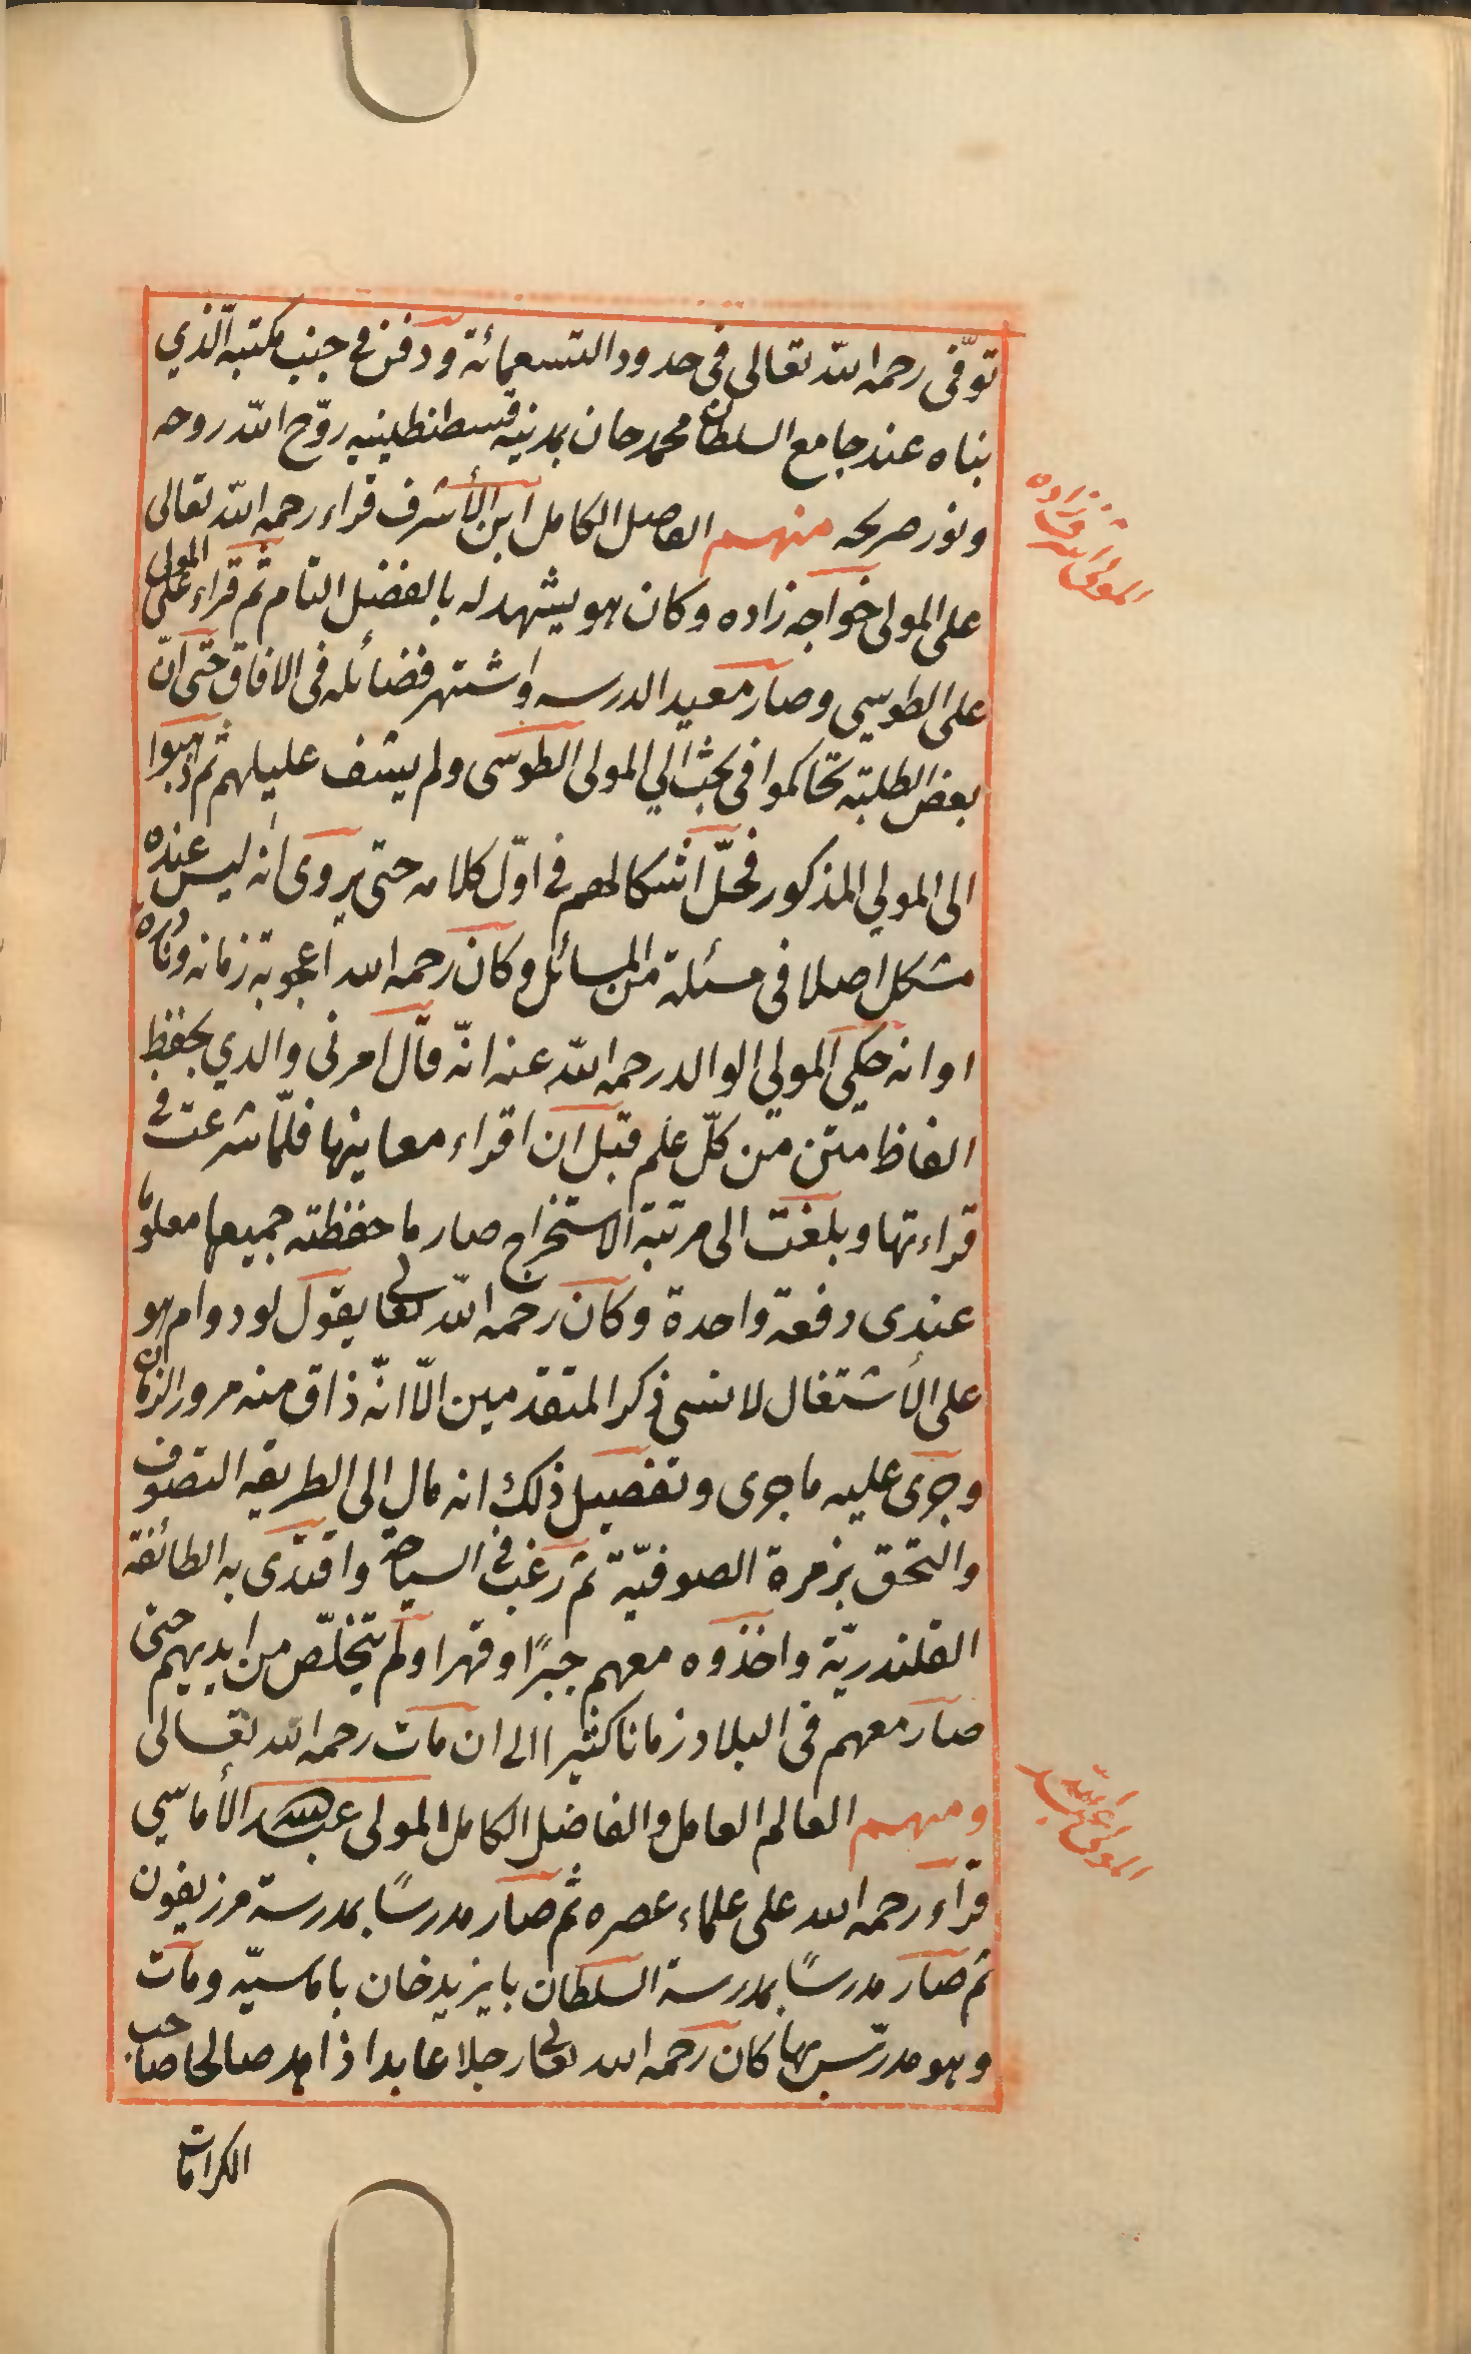 توّفى رحمه الله تعالى فى حدود التسعمائة ودفن فى جنب مكتبه الّذي
بناه عند جامع السلطان محمد خان بمدنيه قسطنطينيه روّح الله روحه
ونور ضريحه منهم الفاضل الكامل ابن الأشرف قراء رحمه الله تعالى
المولى اشرف زاده
على المولى خواجه زاده وكان هو يشهد له بالفضل التام ثم قراء على المولى
على الطوسي وصار معيد الدرسه واشتهر فضائله فى الافاق حتى انّ
بعض الطلبته تحاكموا فى بحث الي المولى الطوسى ولم يشف عليلهم ثم ذهبوا
الى المولي المذكور فحلّ اشكالهم فى اوّل كلامه حتى يروى انه ليس عنده
مشكل اصلا فى مسئلة من المسائل وكان رحمه الله اعجوبة زمانه ونادره
اوانه حكى المولي الوالد رحمه الله عنه انّه قال امرنى والدي بحفظ
الفاظ متن متن كلّ علم قبل ان اقراء معاينها فلمّا شرعت فى
قراءتها وبلغت الى مرتبة الاستخراج صار ما حفظته جميعها معلوما
عندى دفعة واحدة وكان رحمه الله تعالى يقول لو دوام هو
على الأشتغال لانسى ذكر المتقدمين الّا انّه ذاق منه مرور الزمان
وجرى عليه ماجرى وتفصيل ذلك انه مال الى الطريقه التصوف
والتحق بزمرة الصوفيّة ثم رغب فى السياحة واقتدى به الطائفة
القلندريّة واخذوه معهم جبرًا وقهرا ولم يتخلّص من ايديهم حتى
صار معهم فى البلاد زمانا كثيرا الى ان مات رحمه الله تعالى
ومنهم العالم العامل والفاضل الكامل المولى عبد الله الأماسي
المولى عبد الله
قراء رحمه الله على علماء عصره ثم صار مدرسًا بمدرسة مرزيفون
ثم صار مدرسًا بمدرسة السلطان بايزيد خان باماسيّه ومات
وهو مدرّس بها كان رحمه الله تعالى رجلا عابدا ذاهد صالحا صاحب
الكرامات